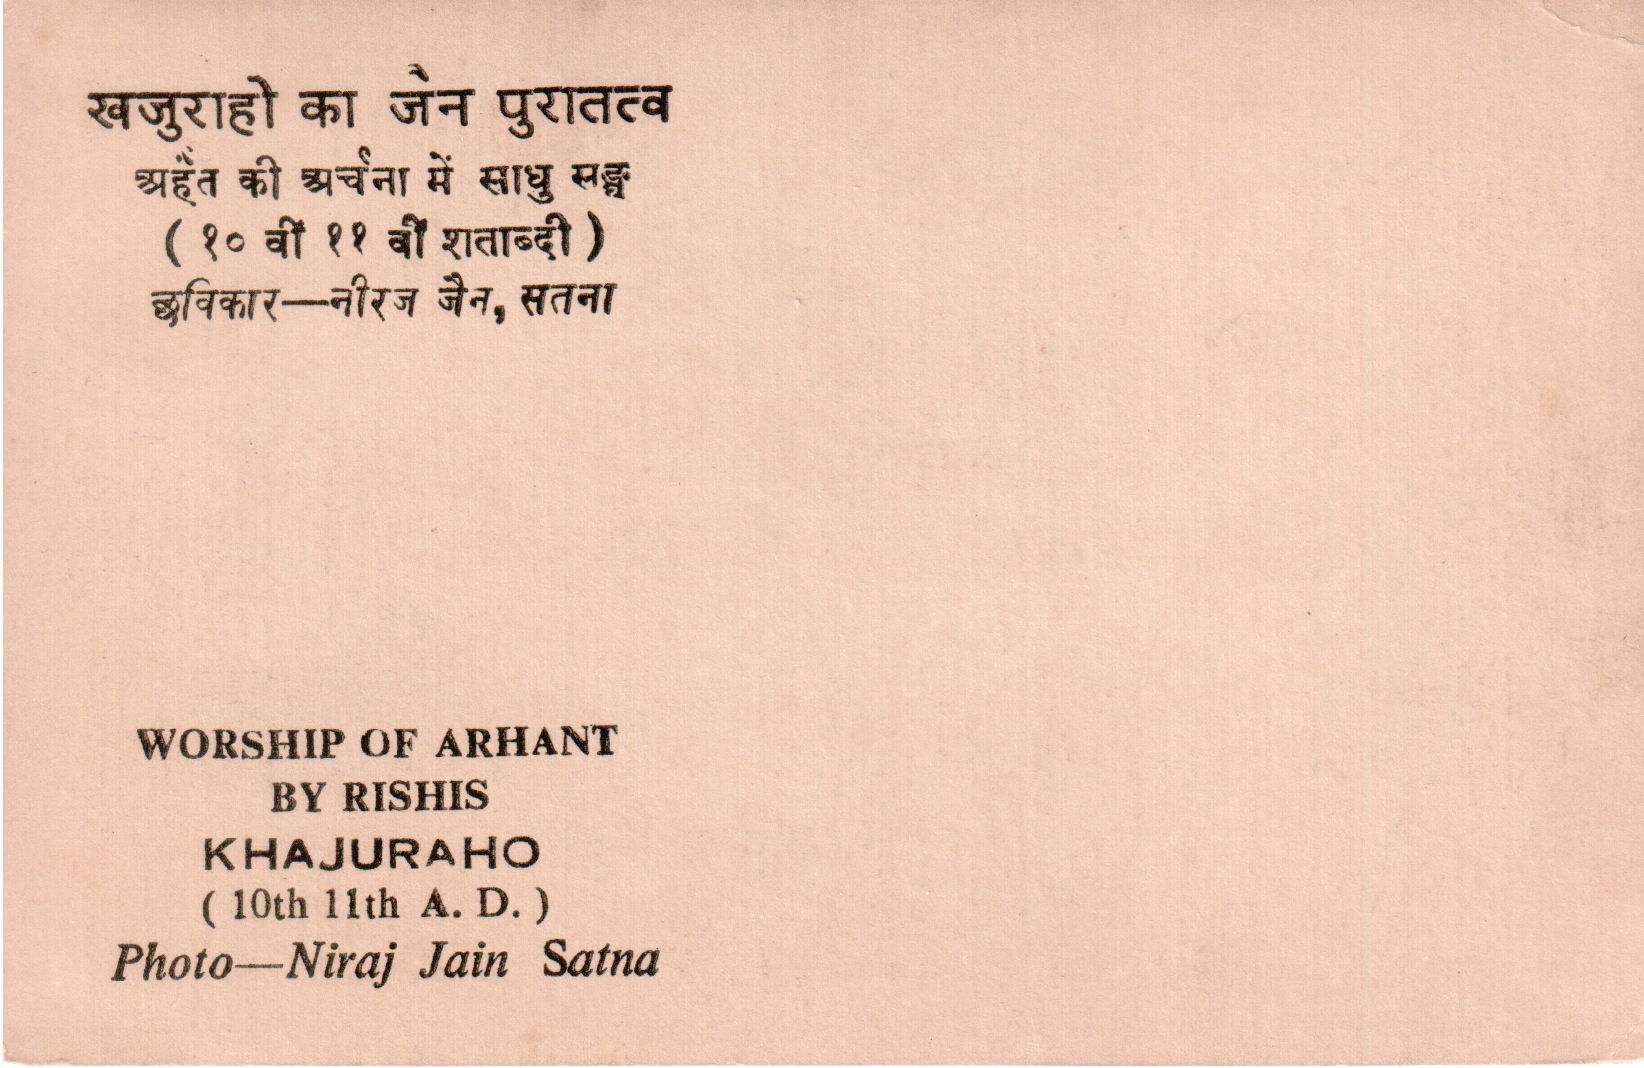 खजुराहो का जैन पुरातत्व
अर्हंत की अर्चना में साधु सङ्घ
( १० वीं ११ वीं शताब्दी )
छविकार—नीरज जैन, सतना
WORSHIP OF ARHANT
BY RISHIS
KHAJURAHO
( 10th 11th A. D. )
Photo—Niraj Jain Satna